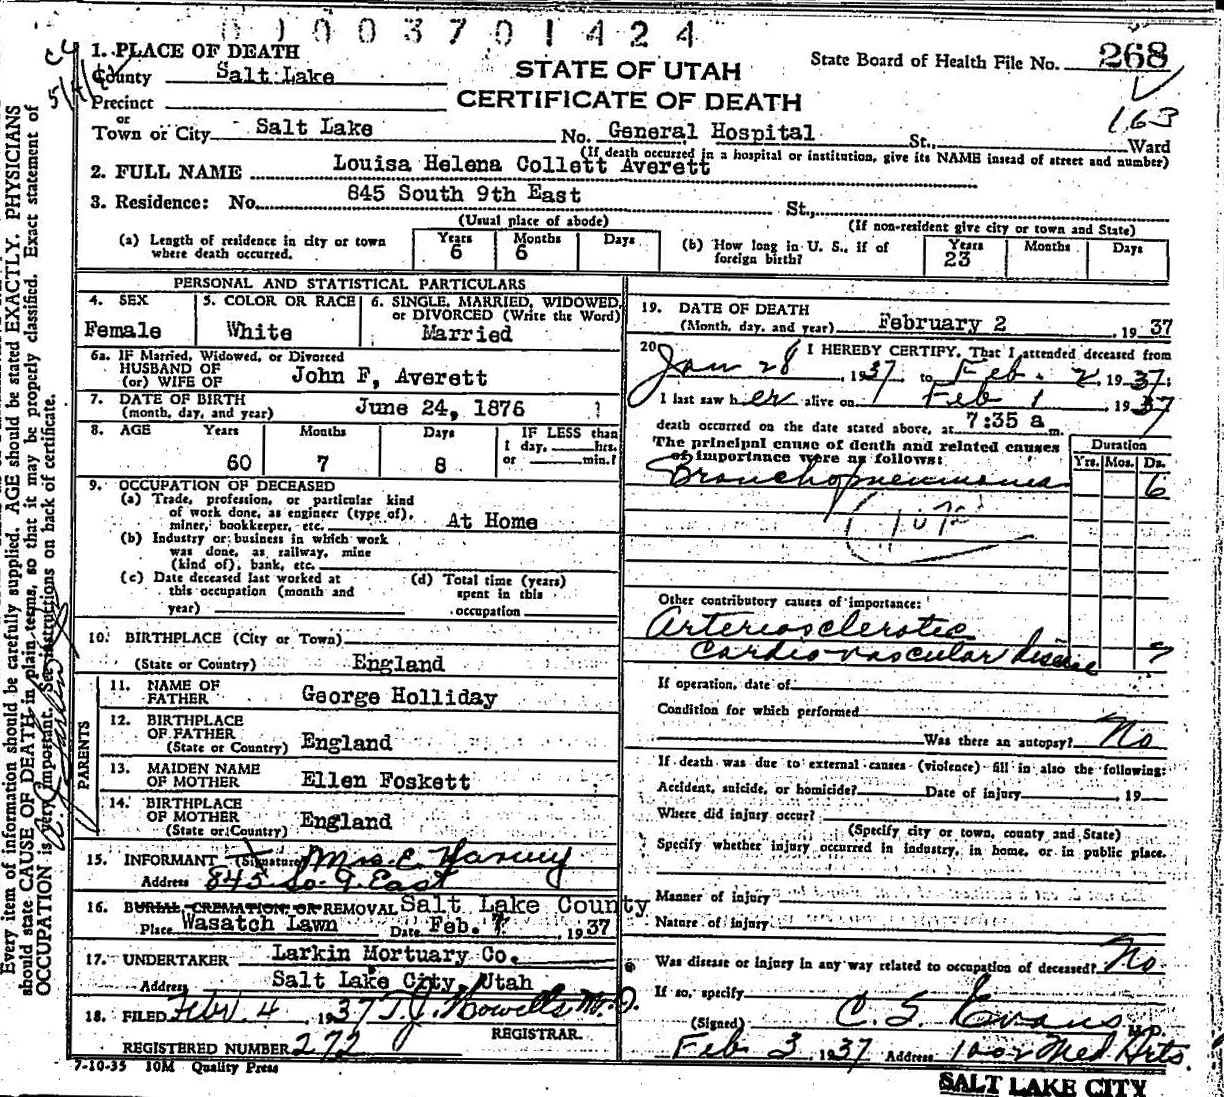 01003701424
1. PLACE OF DEATH
County Salt Lake
Precinct
or
Town or City Salt Lake No. General Hospital St., Ward
STATE OF UTAH
CERTIFICATE OF DEATH
State Board of Health File No. 268
163
(If death occurred in a hospital or institution, give its NAME instead of street and number)
2. FULL NAME Louisa Helena Collett Averett
3. Residence: No. 845 South 9th East St.,
(Usual place of abode) (If non-resident give city or town and State)
(a) Length of residence in city or town where death occurred. Years 6 Months 6 Days
(b) How long in U. S., if of foreign birth? Years 23 Months Days
PERSONAL AND STATISTICAL PARTICULARS
4. SEX Female
5. COLOR OR RACE White
6. SINGLE, MARRIED, WIDOWED, or DIVORCED (Write the Word) Married
6a. IF Married, Widowed, or Divorced
HUSBAND OF
(or) WIFE OF John F, Averett
7. DATE OF BIRTH
(month, day, and year) June 24, 1876
8. AGE Years 60 Months 7 Days 8 IF LESS than 1 day, hrs. or min.?
9. OCCUPATION OF DECEASED
(a) Trade, profession, or particular kind
of work done, as engineer (type of),
miner, bookkeeper, etc. At Home
(b) Industry or business in which work
was done, as railway, mine
(kind of), bank, etc.
(c) Date deceased last worked at this occupation (month and year)
(d) Total time (years) spent in this occupation
10. BIRTHPLACE (City or Town)
(State or Country) England
PARENTS
11. NAME OF FATHER George Holliday
12. BIRTHPLACE OF FATHER
(State or Country) England
13. MAIDEN NAME OF MOTHER Ellen Foskett
14. BIRTHPLACE OF MOTHER
(State or Country) England
15. INFORMANT (Signature) Mrs. E. Harvey
Address 845 So. 9 East
16. BURIAL, CREMATION, OR REMOVAL Salt Lake County
Place Wasatch Lawn Date Feb. 1937
17. UNDERTAKER Larkin Mortuary Co.
Address Salt Lake City, Utah
18. FILED Feb. 4 1937 T.J. Howells M.D.
REGISTRAR.
REGISTERED NUMBER 272
7-10-35 10M Quality Press
19. DATE OF DEATH
(Month, day, and year) February 2, 1937
20. I HEREBY CERTIFY, That I attended deceased from
Jan 28, 1937 to Feb. 2, 1937;
I last saw her alive on Feb 1 1937
death occurred on the date stated above, at 7:35 a m.
The principal cause of death and related causes
of importance were as follows:
Duration
Yrs. Mos. Ds.
Bronchopneumonia 6
Other contributory causes of importance:
Arteriosclerotic
cardio-vascular disease ?
If operation, date of
Condition for which performed
Was there an autopsy? No
If death was due to external causes (violence) fill in also the following:
Accident, suicide, or homicide? Date of injury, 19
Where did injury occur?
(Specify city or town, county and State)
Specify whether injury occurred in industry, in home, or in public place.
Manner of injury
Nature of injury
Was disease or injury in any way related to occupation of deceased? No
If so, specify
(Signed) C. S. Evans M.D.
Feb 3 1937 Address 1002 Med Arts
SALT LAKE CITY
Every item of information should be carefully supplied. AGE should be stated EXACTLY. PHYSICIANS
should state CAUSE OF DEATH in plain terms, so that it may be properly classified. Exact statement of
OCCUPATION is very important. See instructions on back of certificate.